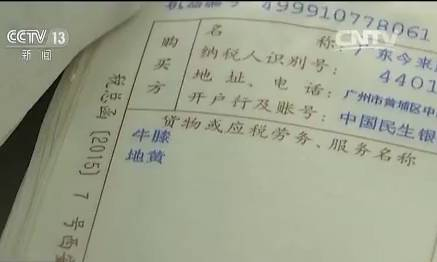 CCTV 13
新闻
CNTV
机器编号 499910778061
购买方
名称: 广东今来
纳税人识别号: 4401
地址、电话: 广州市黄埔区中
开户行及账号: 中国民生银
货物或应税劳务、服务名称
牛膝
地黄
税总函〔2015〕7号